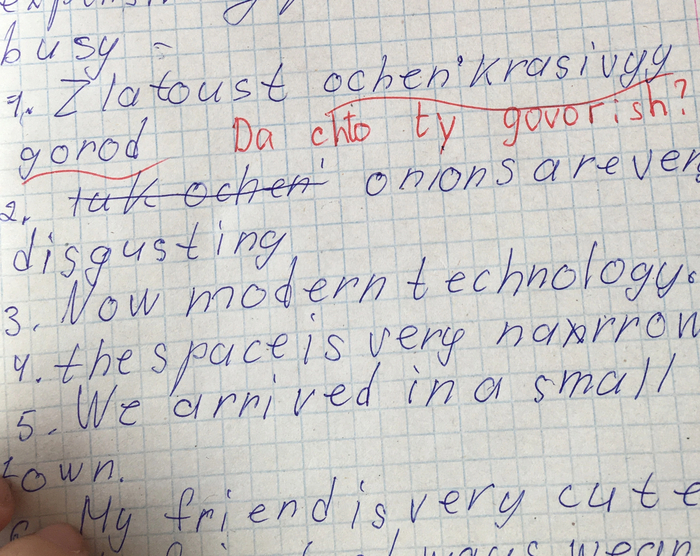 busy -
1. Zlatoust ochen' krasivyy
gorod Da chto ty govorish?
2. tuk ochen' onions are ver
disgusting
3. Now modern technology.
4. the space is very nanrrow
5. We arrived in a small
town.
6. My friend is very cute